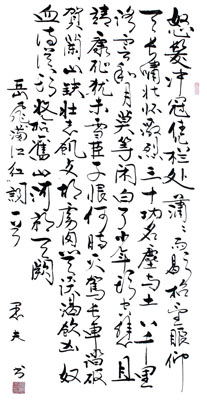 怒髮冲冠凭栏处萧萧雨歇抬望眼仰
天长啸壮怀激烈三十功名尘与土八千里
路云和月莫等闲白了少年头空悲切
靖康耻犹未雪臣子恨何时灭驾长车踏破
贺兰山缺壮志饥餐胡虏肉笑谈渴饮匈奴
血待从头收拾旧山河朝天阙
岳飞满江红词一首